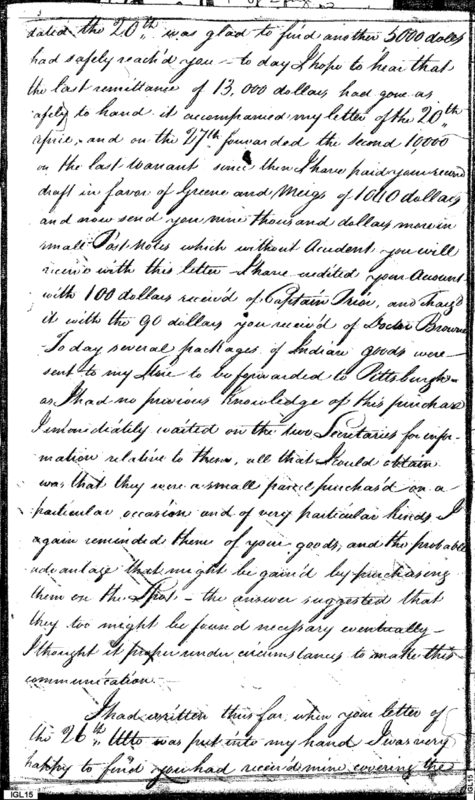 dated the 20th. was glad to find another 5000 dolls
had safely reach'd you — to day I hope to hear that
the last remittance of 13,000 dollars had gone as
afely to hand it accompanied my letter of the 20th
and on the 27th forwarded the second 10,000
on the last warrant since then I have paid your second
draft in favor of Greene and Meigs of 1010 dollars
and now send you nine thousand dollars more in
small Post notes which without Accident you will
receive with this letter I have credited your Account
with 100 dollars receiv'd of Captain Prior, and charg'd
it with the 90 dollars you receiv'd of Doctor Browne
To day several packages of Indian goods were
sent to my Store to be forwarded to Pittsburgh —
as I had no previous knowledge of this purchase
I immediately waited on the two Secretaries for infor-
mation relative to them, all that I could obtain
was that they were a small parcel purchas'd on a
particular occasion and of very particular kinds I
again reminded them of your goods, and the probable
advantage that might be gain'd by purchasing
them on the Spot — the answer suggested that
they too might be found necessary eventually —
I thought it proper under circumstances to make this
communication —
I had written thus far when your letter of
the 26th. Ulto was put into my hand I was very
happy to find you had receiv'd mine covering the
IGL15